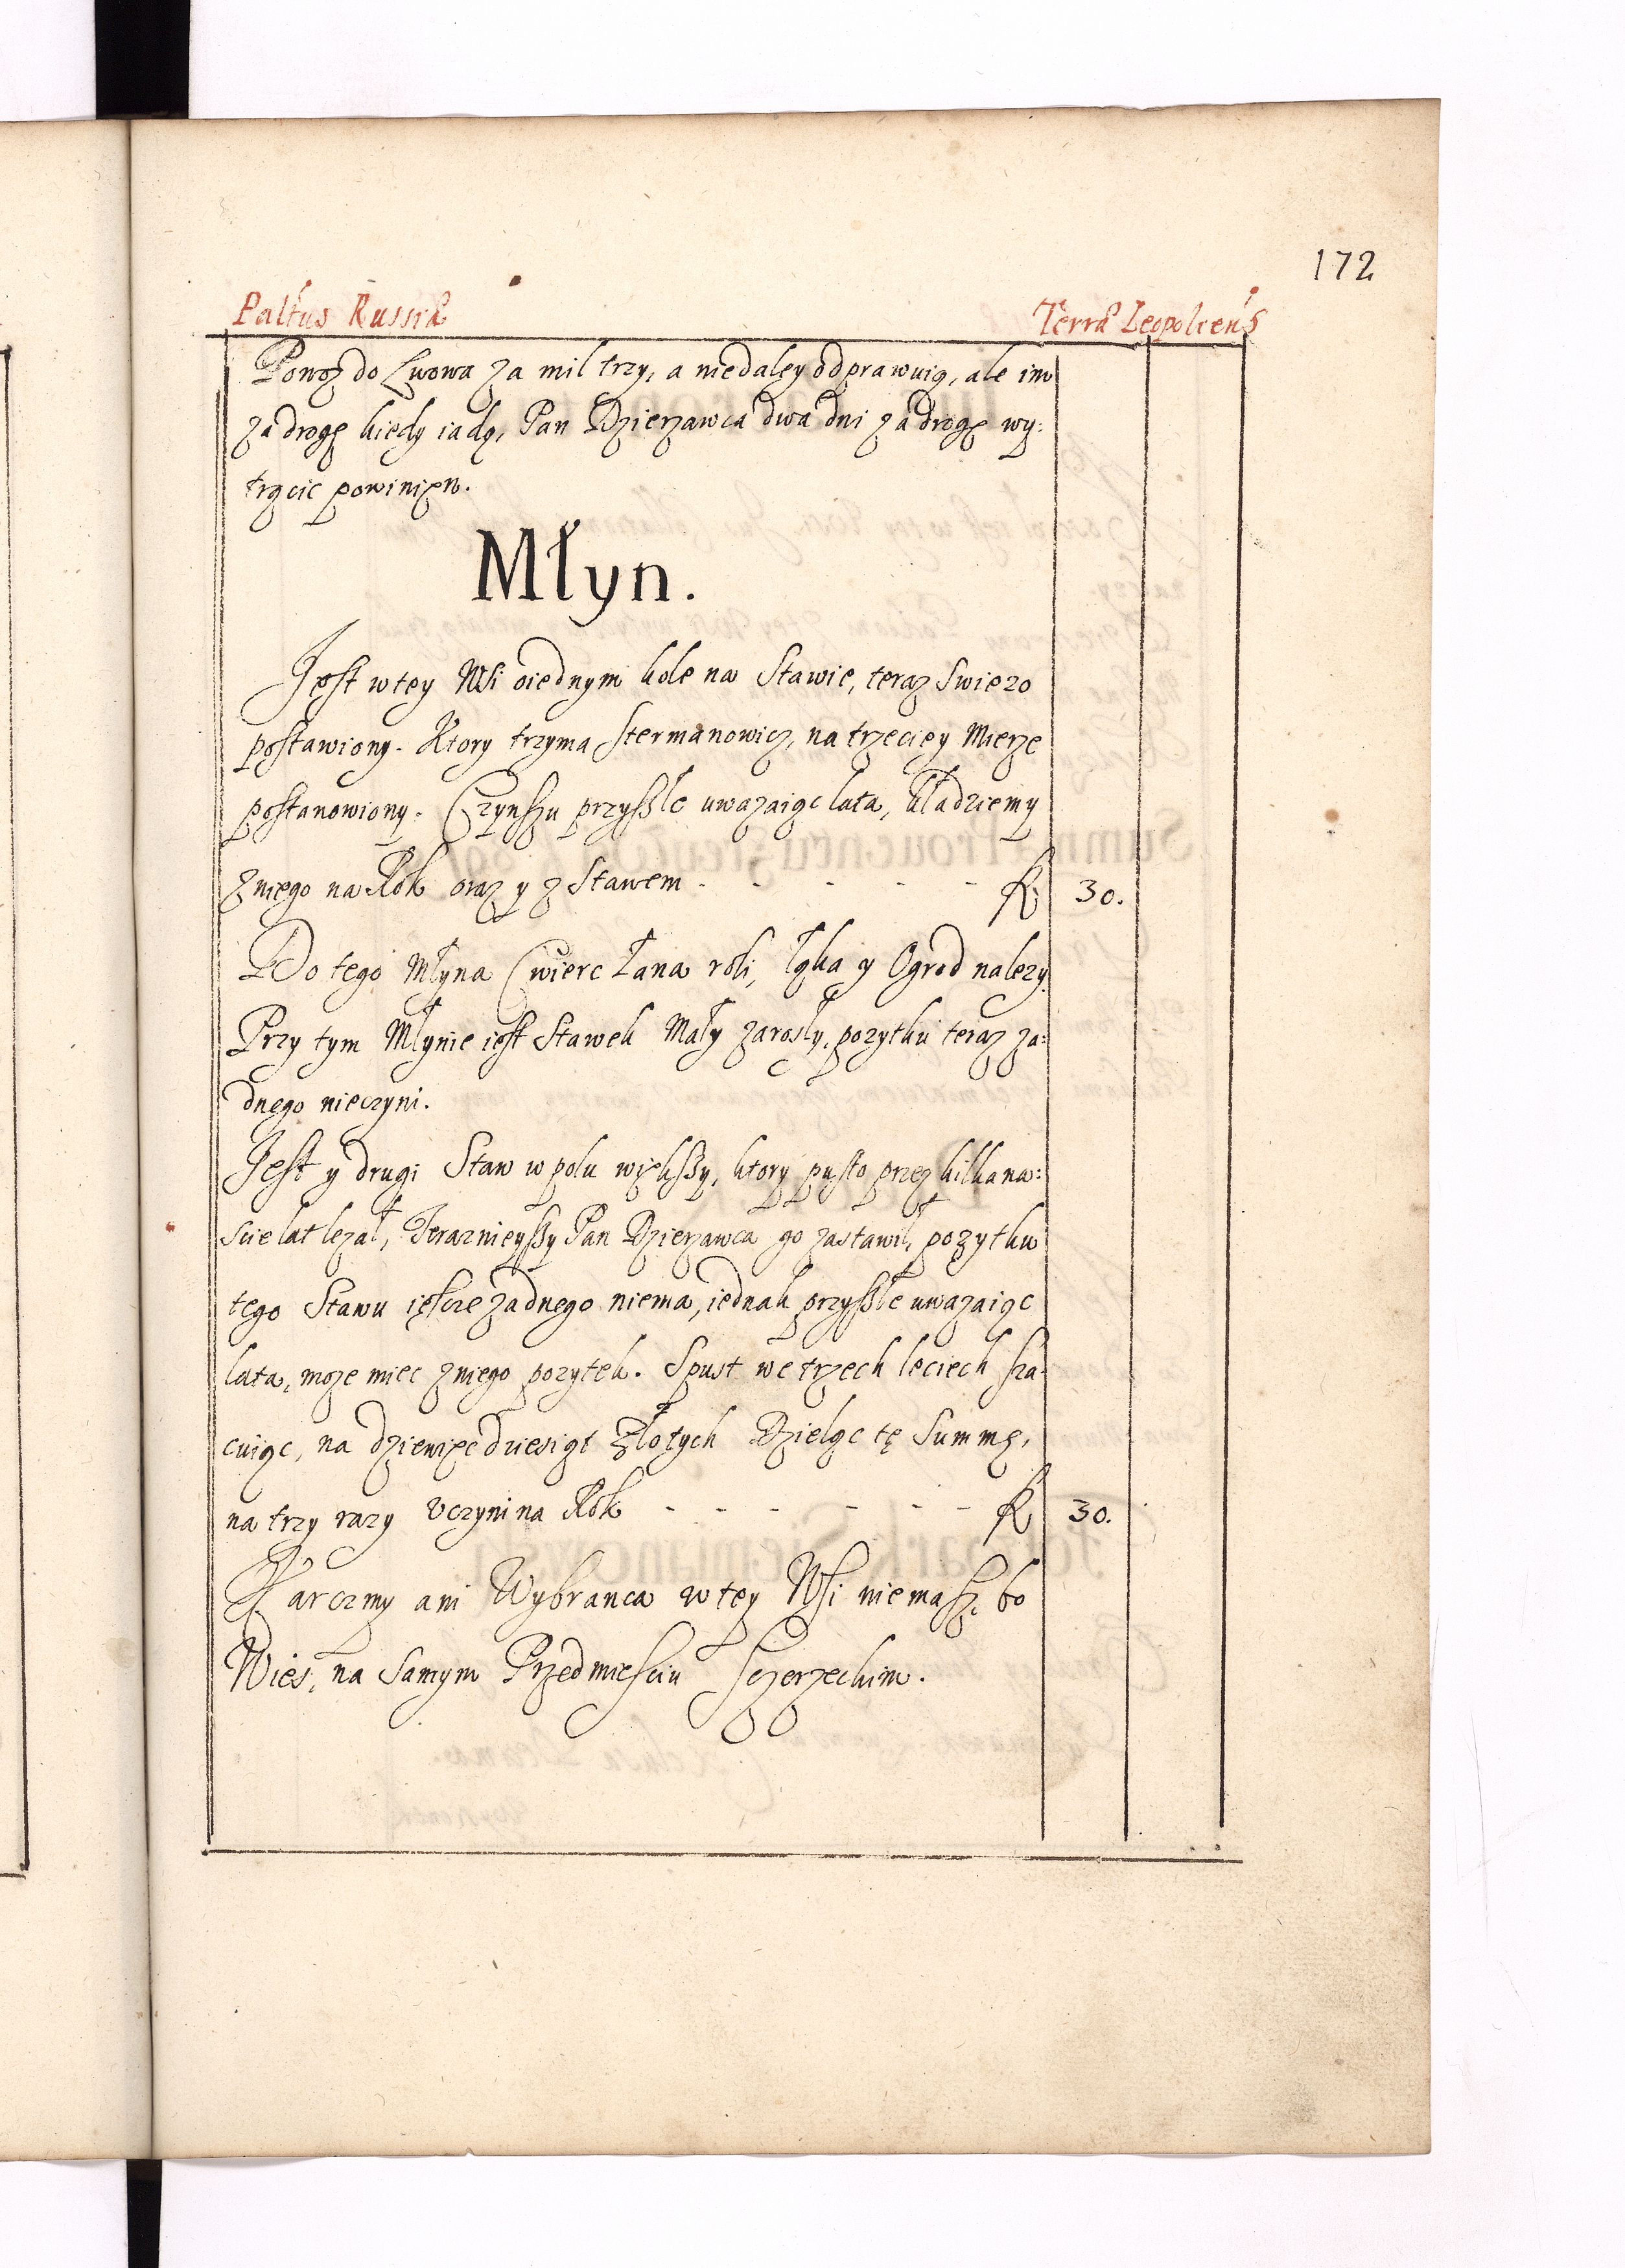 172
Paltus Russiæ Terræ Leopoliens
Powoz do Lwowa za mil trzy, a niedaley odprawuią, ale im
za drogę kiedy iadą, Pan Dzierzawca dwa dni za drogę wy:
trącic powinien.
Młyn.
Jest w tey Wsi o iednym kole na Stawie, teraz swiezo
postawiony. Ktory trzyma Stermanowicz, na trzeciey Mierze
postanowiony. Czynszu przyszłe uwazaiąc lata, kładziemy
z niego na Rok oraz y z Stawem - - - - - - f. 30.
Do tego Młyna Cwierc Łana roli, łąka y Ogrod nalezy.
Przy tym Młynie iest Stawek Mały zarosły, pozytku teraz za:
dnego nieczyni.
Jest y drugi Staw w polu większy, ktory pusto przez kilkana:
scie lat lezał, Teraznieyszy Pan Dzierzawca go zastawił, pozytku
tego Stawu ieszcze zadnego niema, iednak przyszłe uwazaiąc
lata, moze miec z niego pozytek. Spust we trzech leciech sza-
cuiąc, na dziewiędziesiąt złotych Dzieląc tę Summę,
na trzy razy Uczyni na Rok - - - - - - f. 30.
Karczmy ani Wybranca w tey Wsi niemasz, bo
Wies, na samym Przedmiesciu Sczerzeckim.